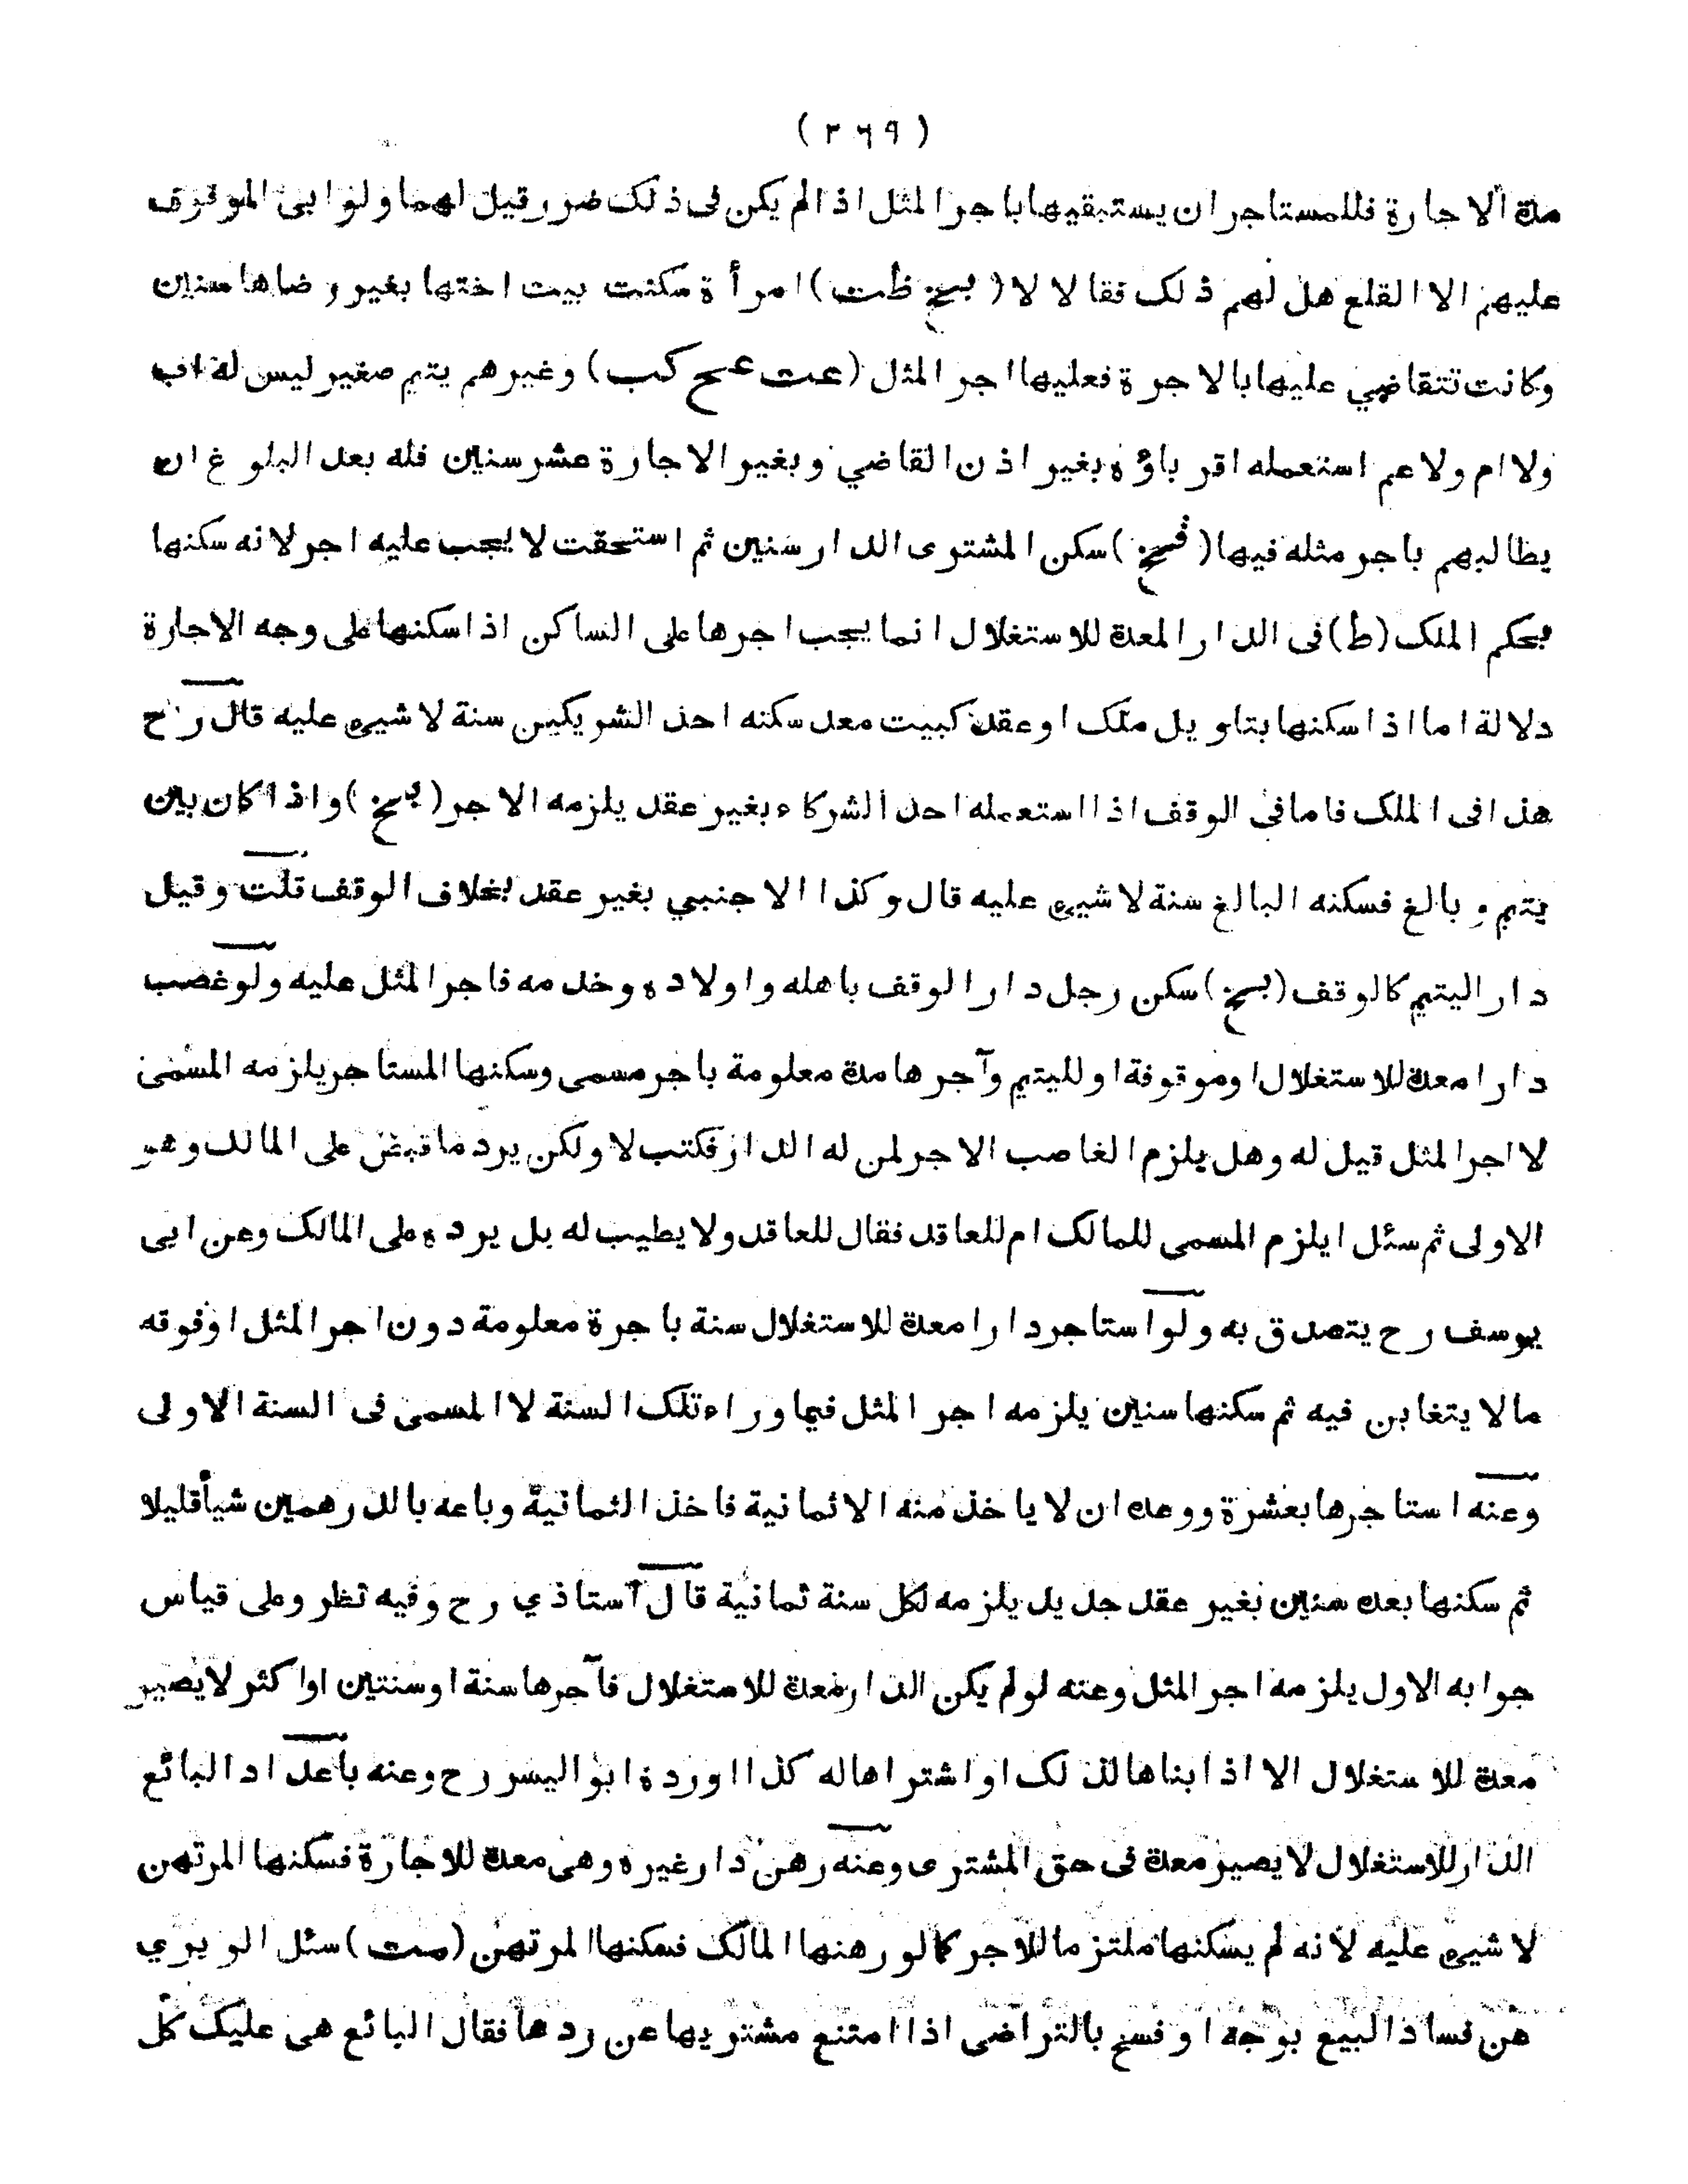 ( ٣٦٩ )
مدة الاجارة فللمستاجر ان يستبقيها باجر المثل اذا لم يكن فى ذلك ضرر قيل لهما ولو ابى الموقوف
عليهم الا القلع هل لهم ذلك فقالا لا ( بخ ظت ) امرأة سكنت بيت اختها بغير رضاها سنين
وكانت تتقاضي عليها بالاجرة فعليها اجر المثل ( عت عح كب ) وغيرهم يتيم صغير ليس له اب
ولا ام ولا عم استعمله اقرباؤه بغير اذن القاضي وبغير الاجارة عشر سنين فله بعد البلوغ ان
يطالبهم باجر مثله فيها ( فخ ) سكن المشترى الدار سنين ثم استحقت لا يجب عليه اجر لانه سكنها
بحكم الملك ( ط ) فى الدار المعدة للاستغلال انما يجب اجرها على الساكن اذا سكنها على وجه الاجارة
دلالة اما اذا سكنها بتاويل ملك او عقد كبيت معد سكنه احد الشريكين سنة لا شيء عليه قال رح
هذا فى الملك فاما فى الوقف اذا استعمله احد الشركاء بغير عقد يلزمه الاجر ( بخ ) واذا كان بين
يتيم و بالغ فسكنه البالغ سنة لا شيء عليه قال وكذا الاجنبي بغير عقد بخلاف الوقف قلت وقيل
دار اليتيم كالوقف ( بخ ) سكن رجل دار الوقف باهله واولاده وخدمه فاجر المثل عليه ولو غصب
دارا معدة للاستغلال او موقوفة او لليتيم وآجرها مدة معلومة باجر مسمى وسكنها المستاجر يلزمه المسمى
لا اجر المثل قيل له وهل يلزم الغاصب الاجر لمن له الدار فكتب لا ولكن يرد ما قبض على المالك وهو
الاولى ثم سئل ايلزم المسمى للمالك ام للعاقد فقال للعاقد ولا يطيب له بل يرده على المالك وعن ابى
يوسف رح يتصدق به ولو استاجر دارا معدة للاستغلال سنة باجرة معلومة دون اجر المثل او فوقه
ما لا يتغابن فيه ثم سكنها سنين يلزمه اجر المثل فيما وراء تلك السنة لا المسمى فى السنة الاولى
وعنه استاجرها بعشرة ووعده ان لا ياخذ منه الا ثمانية فاخذ الثمانية وباعه بالدرهمين شيأ قليلا
ثم سكنها بعده سنين بغير عقد جديد يلزمه لكل سنة ثمانية قال استاذي رح وفيه نظر وعلى قياس
جوابه الاول يلزمه اجر المثل وعنه لو لم يكن الدار معدة للاستغلال فآجرها سنة او سنتين او اكثر لا يصير
معدة للاستغلال الا اذا بناها لذلك او اشتراها له كذا اورده ابو اليسر رح وعنه باعداد البائع
الدار للاستغلال لا يصير معدة فى حق المشترى وعنه رهن دار غيره وهى معدة للاجارة فسكنها المرتهن
لا شيء عليه لانه لم يسكنها ملتزما للاجر كما لو رهنها المالك فسكنها المرتهن ( مت ) سئل الوبري
عن فساد البيع بوجه او فسخ بالتراضى اذا امتنع مشتريها عن ردها فقال البائع هى عليك كل